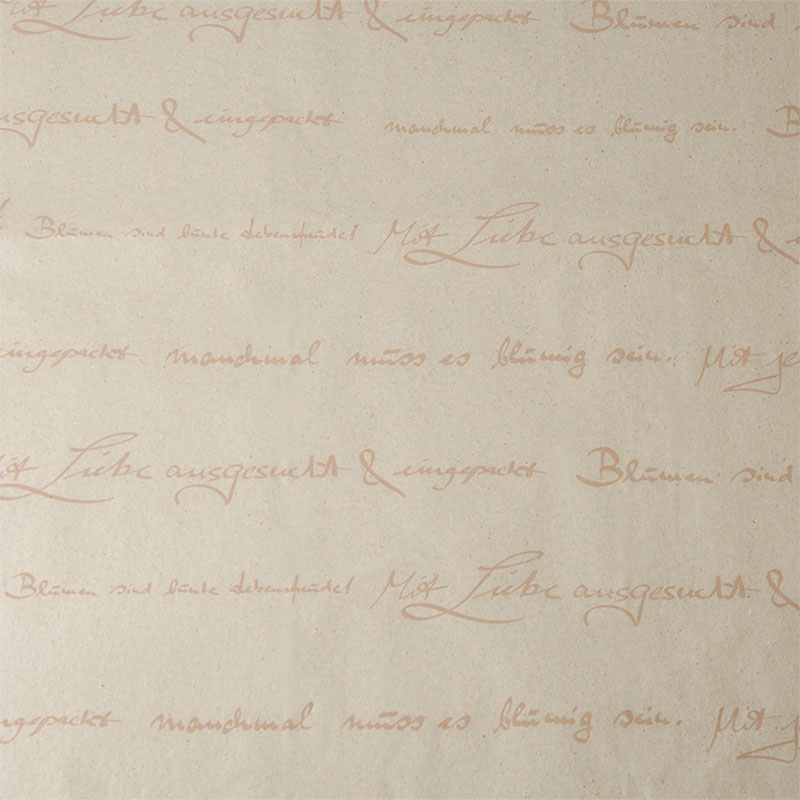 Mit Liebe ausgesucht & eingepackt Blumen sind
ausgesucht & eingepackt manchmal muss es blumig sein.
Blumen sind bunte Lebensfreude! Mit Liebe ausgesucht &
eingepackt manchmal muss es blumig sein. Mit je
Mit Liebe ausgesucht & eingepackt Blumen sind
Blumen sind bunte Lebensfreude! Mit Liebe ausgesucht &
ngepackt manchmal muss es blumig sein. Mit